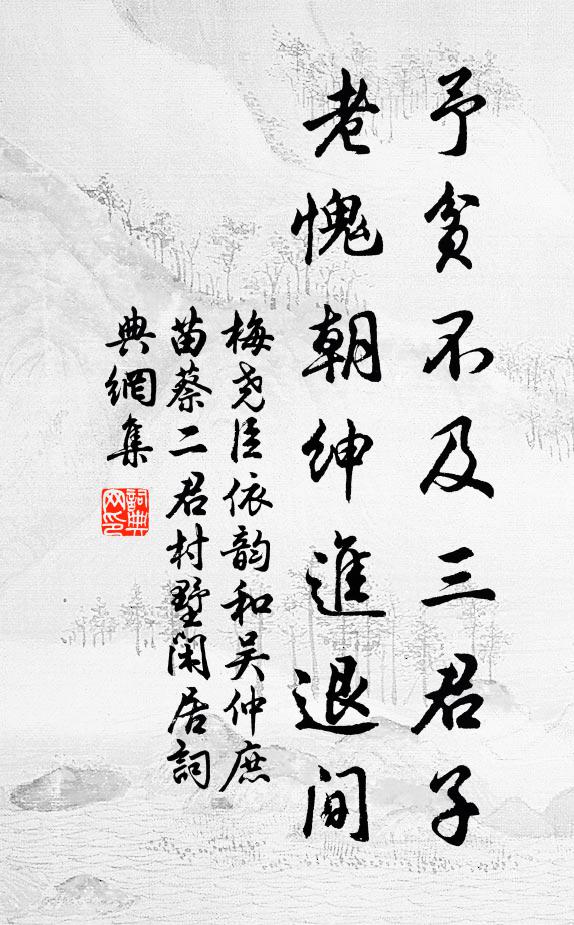 予貧不及三君子
老愧朝紳進退間
梅尧臣依韵和吴仲庶
苗蔡二君村墅闲居詞
典網集
詞典网印